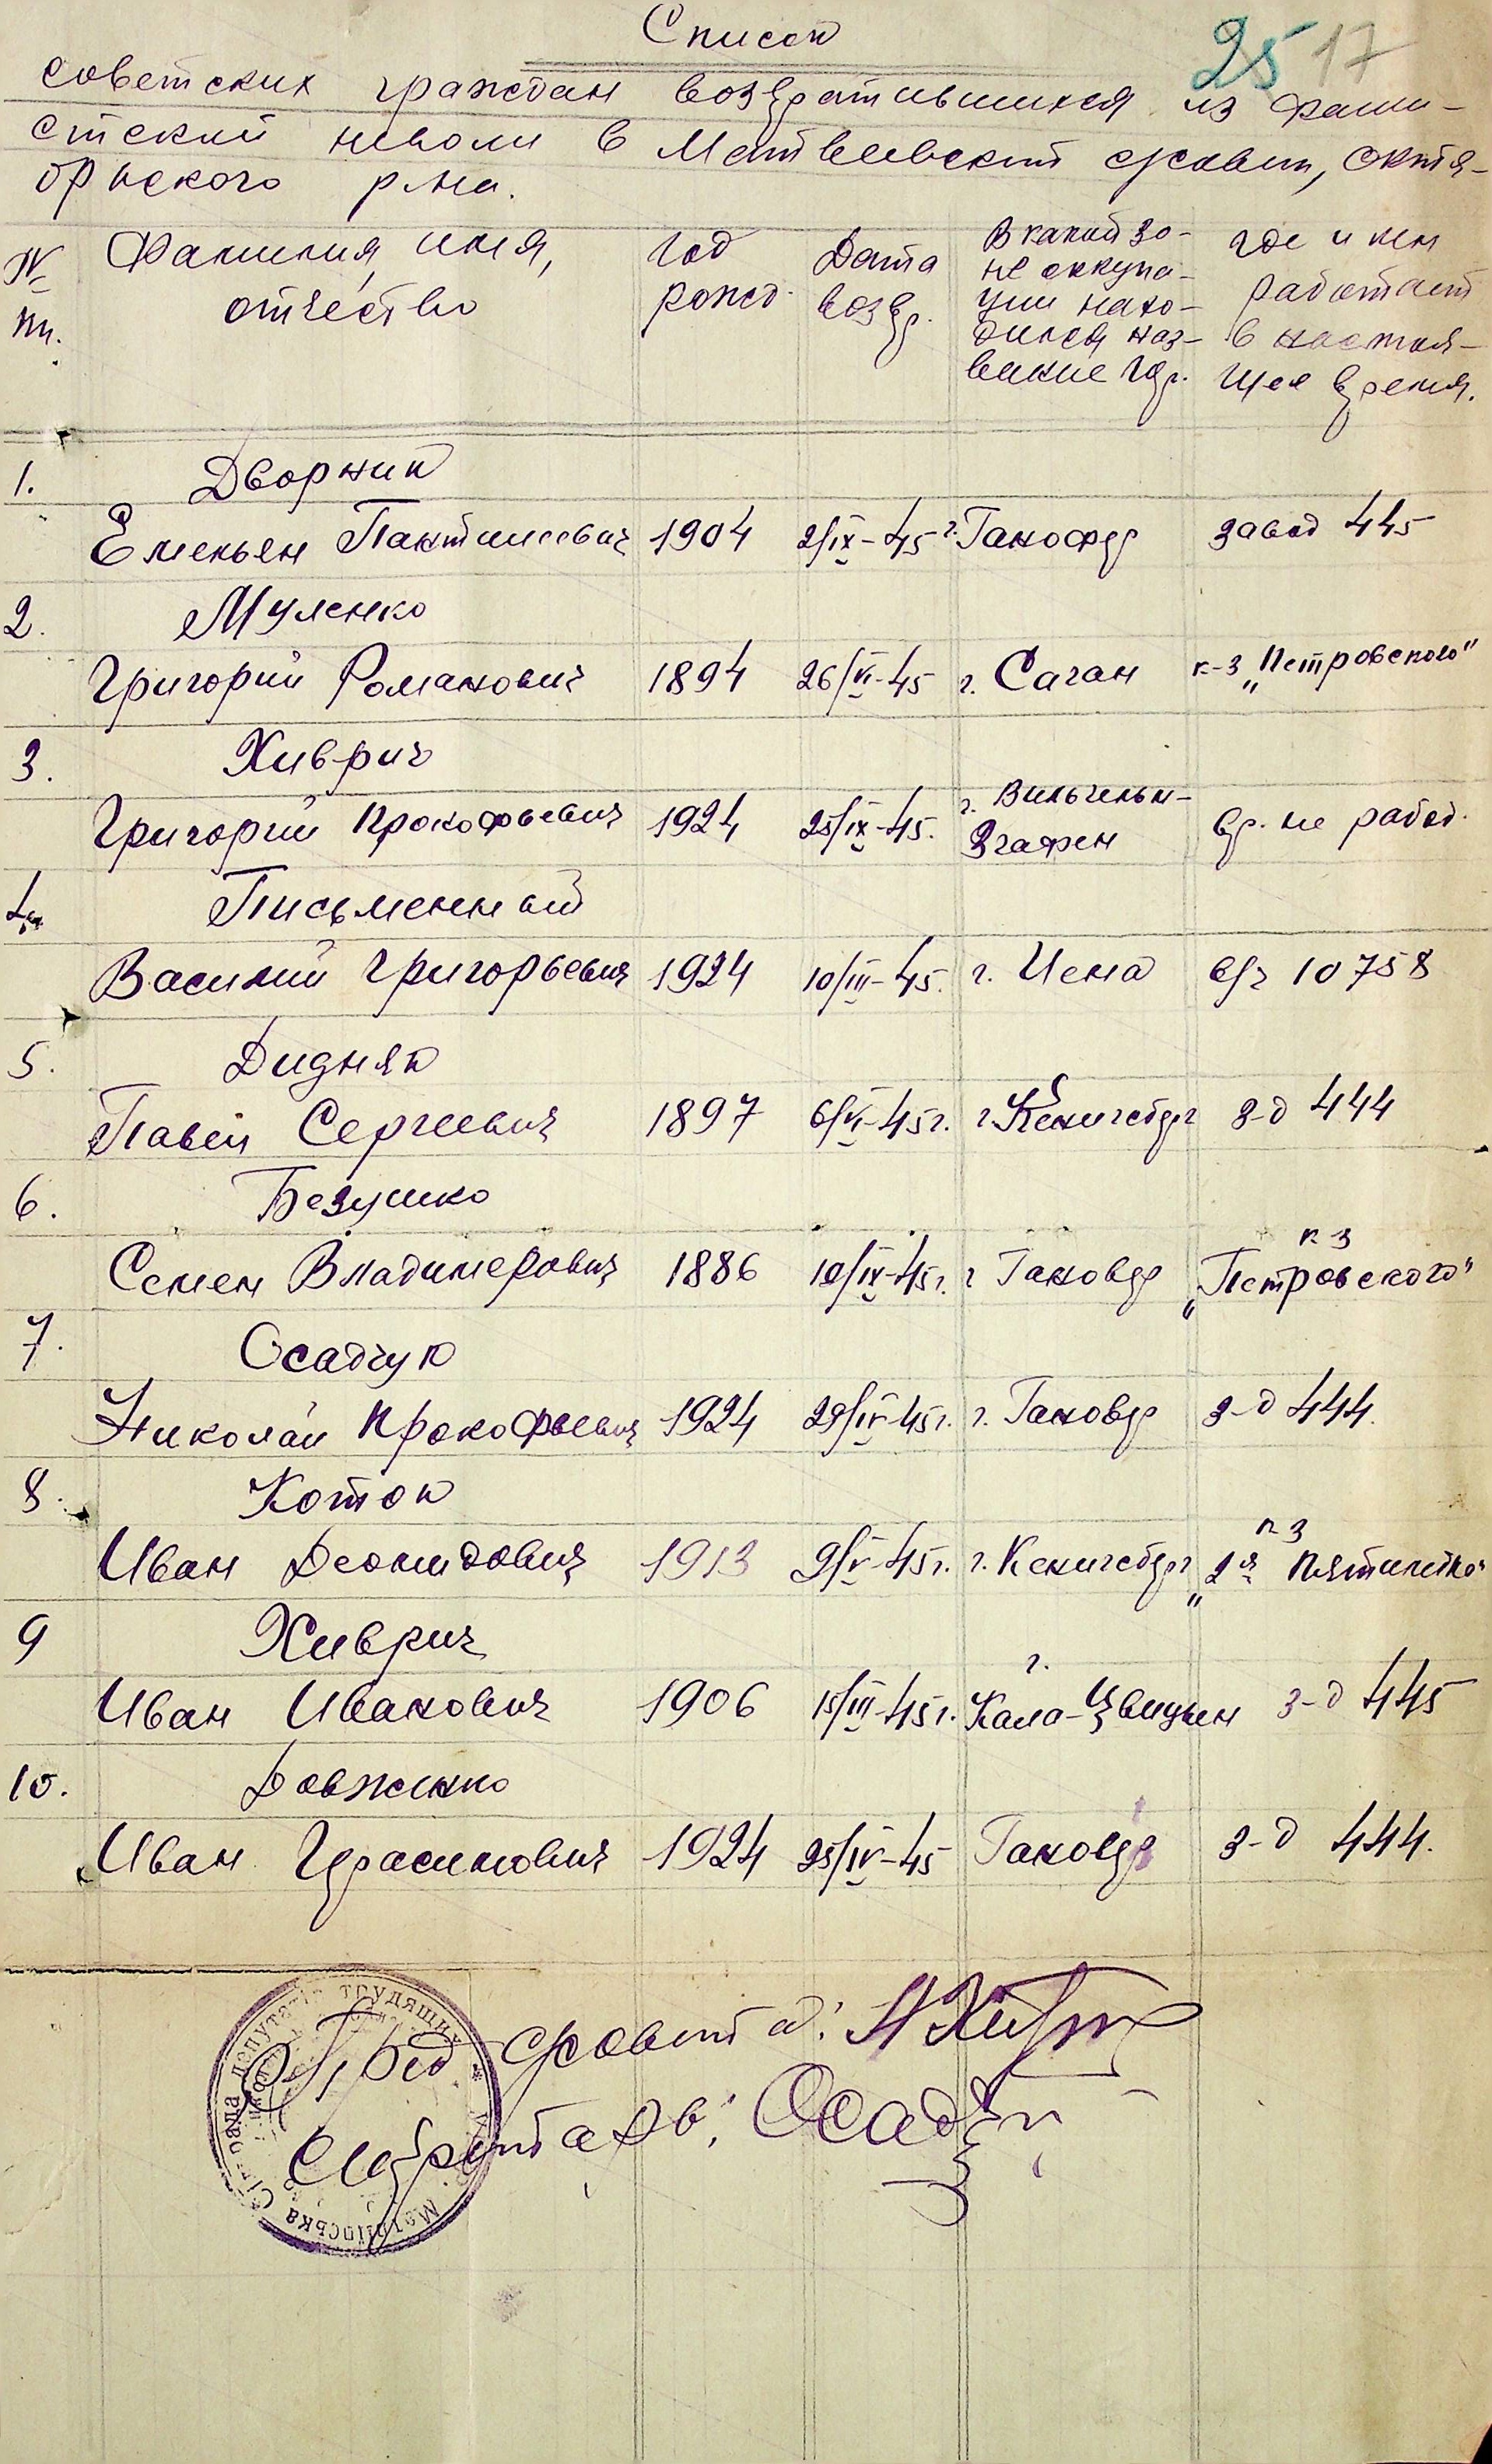 Список
25 17
советских граждан возвратившихся из фаши-
стской неволи в Матвеевский с/совет, Октя-
брьского р-на.
№ пп. Фамилия, имя, отчество год рожд. Дата возвр. В какой зо-не оккупа-ции нахо-дился наз-вание гор. где и кем работает в настоя-щее время.
1. Дворник
Емельян Пантилеевич 1904 2/IX-45 г. Ганофер завод 445
2. Муленко
Григорий Романович 1894 26/VI-45 г. Саган к-з „Петровского"
3. Хиврич
Григорий Прокофьевич 1924 25/IX-45. г. Вильгельм-Згафен вр. не работ.
4. Письменный
Василий Григорьевич 1924 10/III-45. г. Иена в/ч 10758
5. Дидняк
Павел Сергеевич 1897 6/VI-45г. г. Кенигсберг з-д 444
6. Безушко
Семен Владимерович 1886 10/IX-45г. г Гановер к-з „Петровского"
7. Осадчук
Николай Прокофьевич 1924 29/IV-45г. г. Гановер з-д 444.
8. Коток
Иван Леонидович 1913 9/V-45г. г. Кенигсберг к-з „2я Пятилетка"
9 Хиврич
Иван Иванович 1906 15/III-45г. г. Кала-Цвицын з-д 445
10. Довженко
Иван Герасимович 1924 25/IV-45 Гановер з-д 444.
Пред с/совета:
Секретарь: Осадчу
рада депутатів трудящих